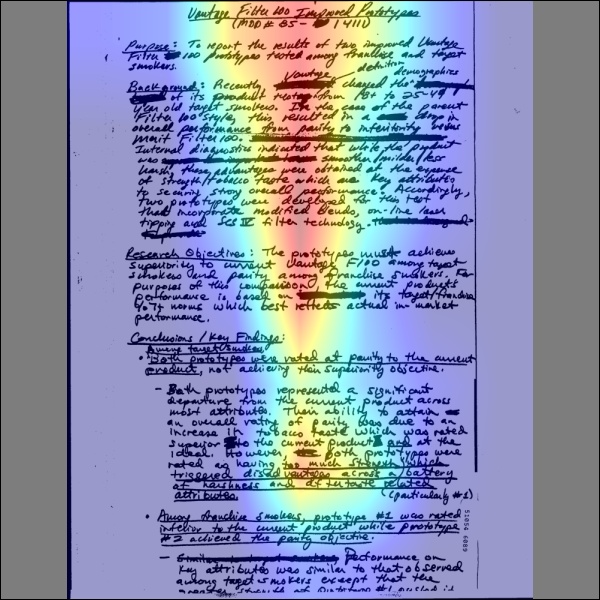 Vantage Filter 100 Improved Prototypes
(MDD # 85- 1411)
Purpose: To report the results of two improved Vantage
Filter 100 prototypes tested among franchise and target
smokers.
Vantage definition
demographics
Background: Recently changed the
of its product from
year old target smokers. In the case of the parent
Filter 100 style, this resulted in a drop in
overall performance from parity to inferiority versus
Merit Filter 100.
Internal diagnostics indicated that while the product
was smoother/milder/less
harsh, these advantages were obtained at the expense
of strength/tobacco taste which are key attributes
to securing strong overall performance. Accordingly,
two prototypes were developed for this test
that incorporate modified blends, on-line laser
tipping and SCS IV filter technology.
Research Objectives: The prototypes must achieve
superiority to current Vantage F100 among target
smokers and parity among franchise smokers. For
purposes of this comparison, the current product's
performance is based on its target/franchise
norms which best reflects actual in-market
performance.
Conclusions/Key Findings:
Among target smokers,
• Both prototypes were rated at parity to the current
product, not achieving their superiority objective.
- Both prototypes represented a significant
departure from the current product across
most attributes. Their ability to attain
an overall rating of parity was due to an
increase in tobacco taste which was rated
superior to the current product and at the
ideal. However, both prototypes were
rated as having too much strength which
triggered disadvantages across a battery
of harshness and aftertaste related
attributes. (particularly #1)
• Among franchise smokers, prototype #1 was rated
inferior to the current product while prototype
#2 achieved the parity objective.
- Performance on
key attributes was similar to that observed
among target smokers except that the
greater strength of prototype #1
51054 6089